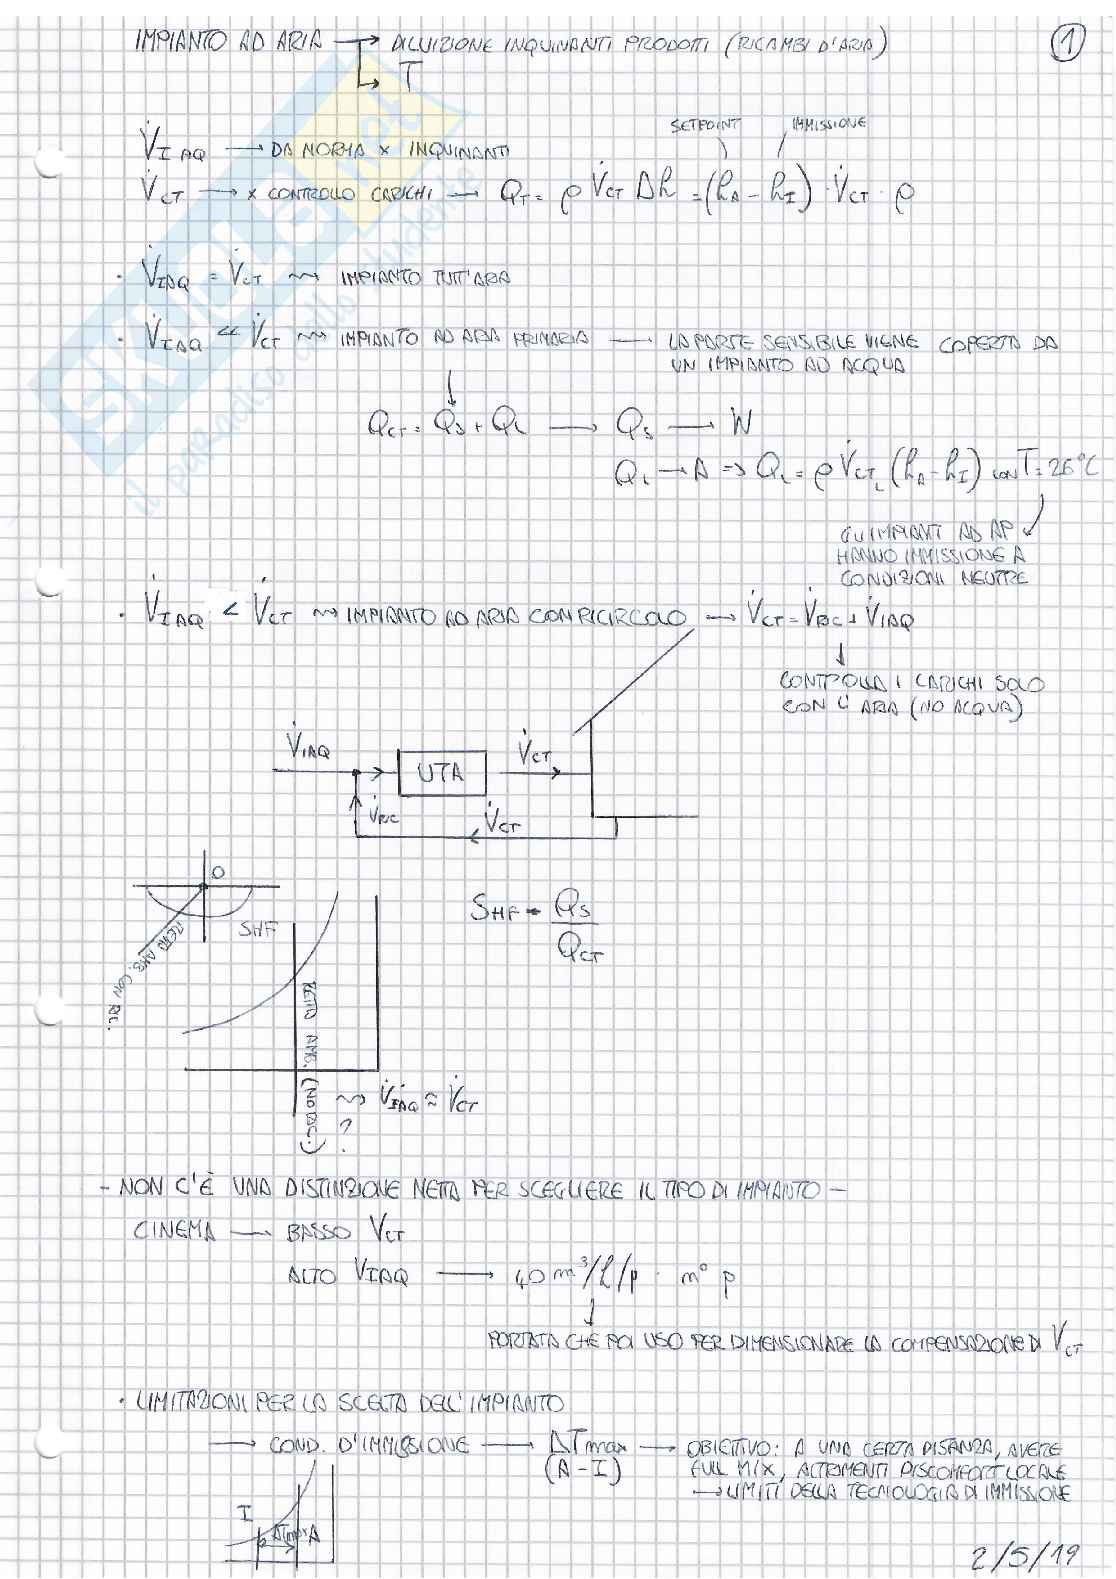 IMPIANTO AD ARIA → DILUIZIONE INQUINANTI PRODOTTI (RICAMBI D'ARIA) 1
→ T
SETPOINT IMMISSIONE
V̇IAQ → DA NORMA x INQUINANTI
V̇CT → x CONTROLLO CARICHI → QT = ρ V̇CT Δh = (hA - hI) · V̇CT · ρ
· V̇IAQ = V̇CT ⇝ IMPIANTO TUTT'ARIA
· V̇IAQ << V̇CT ⇝ IMPIANTO AD ARIA PRIMARIA → LA PARTE SENSIBILE VIENE COPERTA DA
UN IMPIANTO AD ACQUA
QCT = QS + QL → QS → W
QL → A => QL = ρ V̇CTL (hA - hI) CON T = 26°C
GLI IMPIANTI AD AP
HANNO IMMISSIONE A
CONDIZIONI NEUTRE
· V̇IAQ < V̇CT ⇝ IMPIANTO AD ARIA CON RICIRCOLO → V̇CT = V̇RIC + V̇IAQ
CONTROLLA I CARICHI SOLO
CON L'ARIA (NO ACQUA)
V̇IAQ UTA V̇CT
V̇RIC V̇CT
O
SHF
RETTA AMB. CON RIC.
SHF = QS / QCT
RETTA AMB. (NO RIC.)
⇝ V̇IAQ ≈ V̇CT
?
- NON C'È UNA DISTINZIONE NETTA PER SCEGLIERE IL TIPO DI IMPIANTO -
CINEMA → BASSO VCT
ALTO VIAQ → 40 m³/h/p · n° p
PORTATA CHE POI USO PER DIMENSIONARE LA COMPENSAZIONE DI VCT
· LIMITAZIONI PER LA SCELTA DELL'IMPIANTO
→ COND. D'IMMISSIONE → ΔTmax → OBIETTIVO: A UNA CERTA DISTANZA, AVERE
(A - I) FULL MIX, ALTRIMENTI DISCOMFORT LOCALE
→ LIMITI DELLA TECNOLOGIA DI IMMISSIONE
I ΔTmax A
2/5/19
SKUOLA.net
il paradiso dello studente